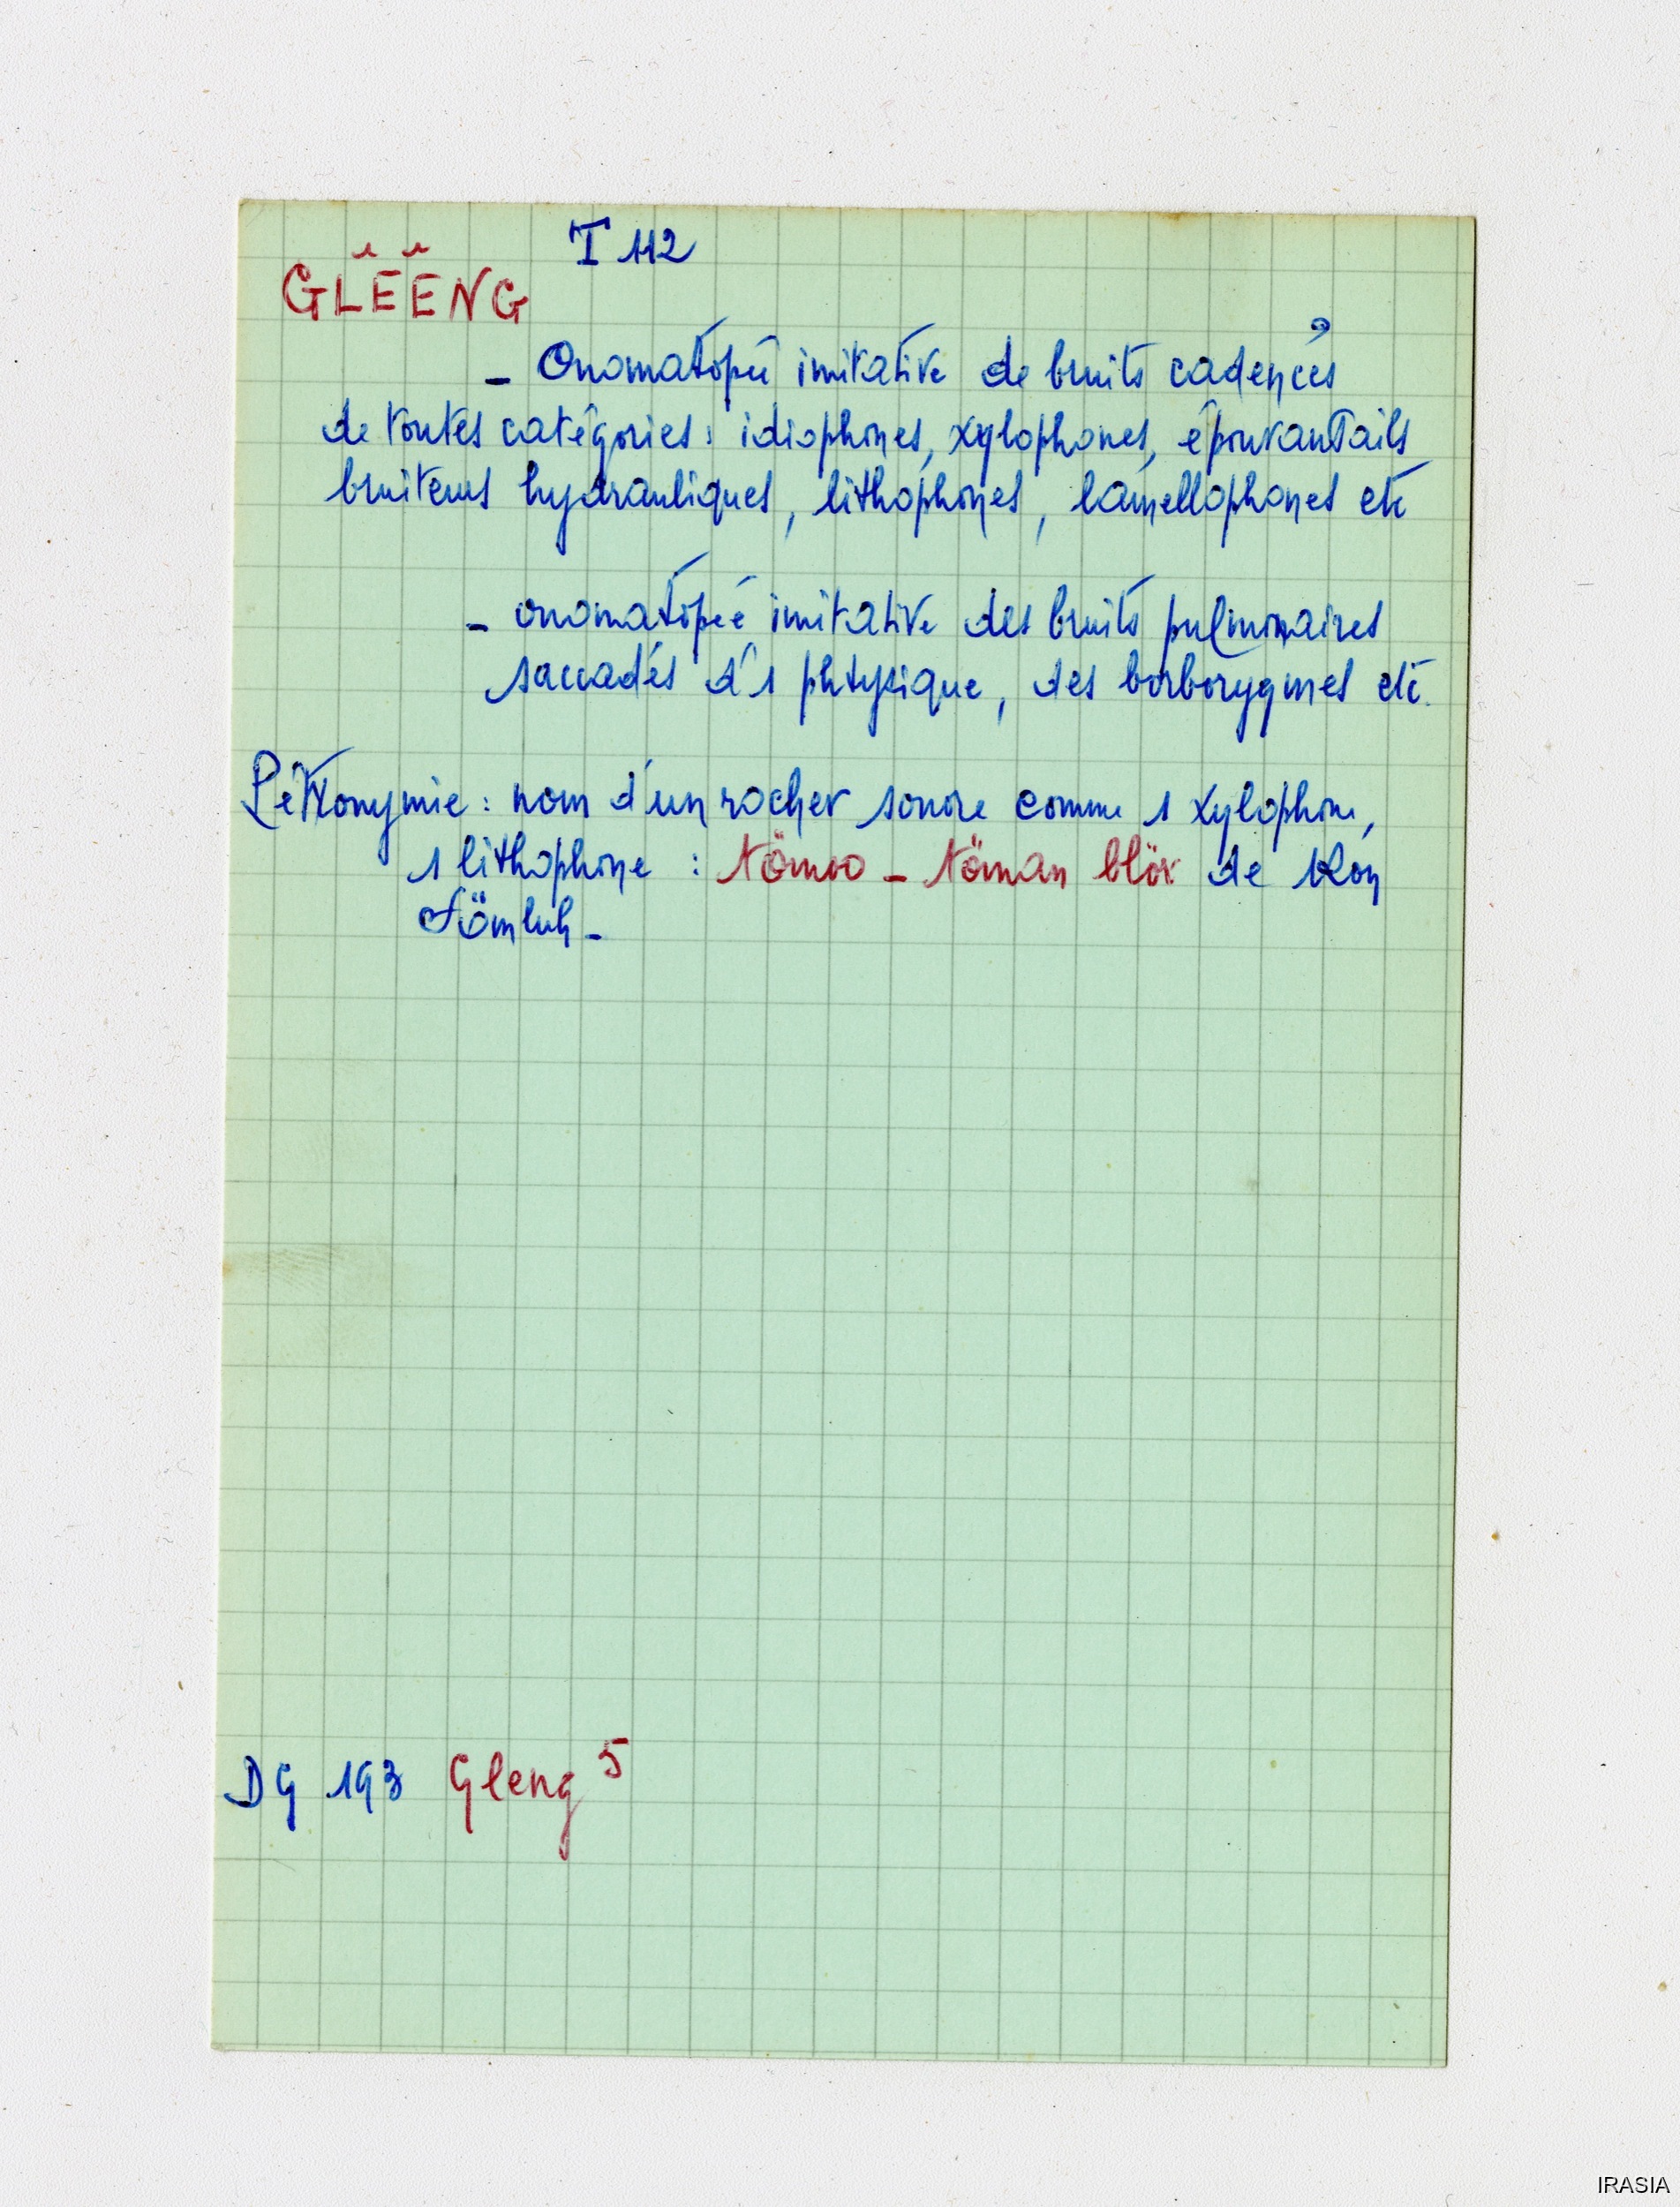 T 112
GLĔĔNG
- Onomatopée imitative de bruits cadencés
de toutes catégories : idiophones, xylophones, épouvantails
bruiteurs hydrauliques, lithophones, lamellophones etc
- onomatopée imitative des bruits pulmonaires
saccadés d'1 phtysique, des borborygmes etc.
Pétronymie : nom d'un rocher sonore comme 1 xylophone,
1 lithophone : tömo - töman blör de Kon
Sömluh -
DG 193 Gleng 5
IRASIA